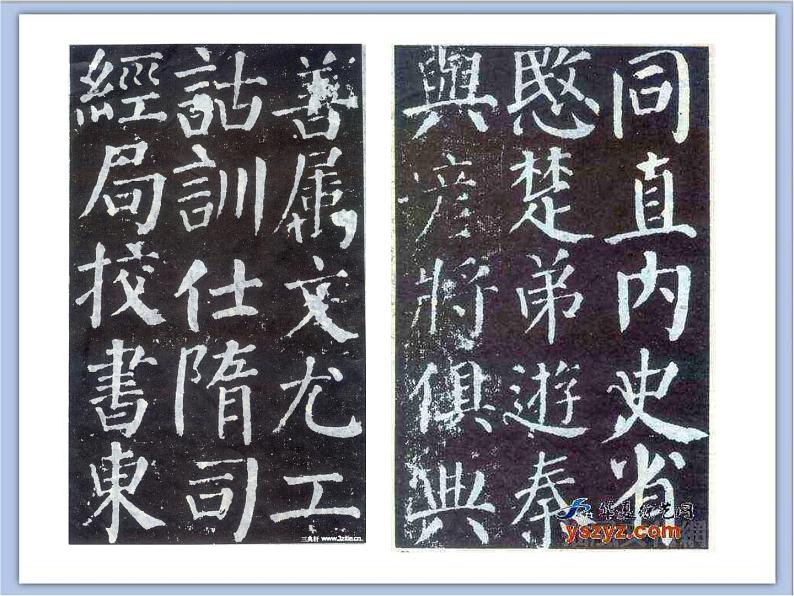 善属文尤工
詁訓仕隋司
經局校書東
同直内史省
愍楚弟遊秦
與彦將俱典
www.3zitie.cn
yszyz.com